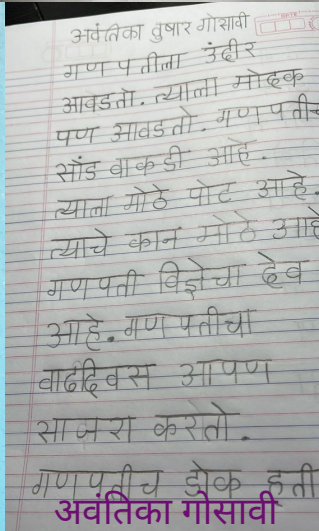 अवंतिका तुषार गोसावी
गणपतीला उंदीर
आवडतो. त्याला मोदक
पण आवडतो. गणपतीच
सोंड वाकडी आहे.
त्याला मोठे पोट आहे.
त्याचे कान मोठे आहे
गणपती विद्येचा देव
आहे. गणपतीचा
वाढदिवस आपण
साजरा करतो.
गणपतीच डोक हती
अवंतिका गोसावी